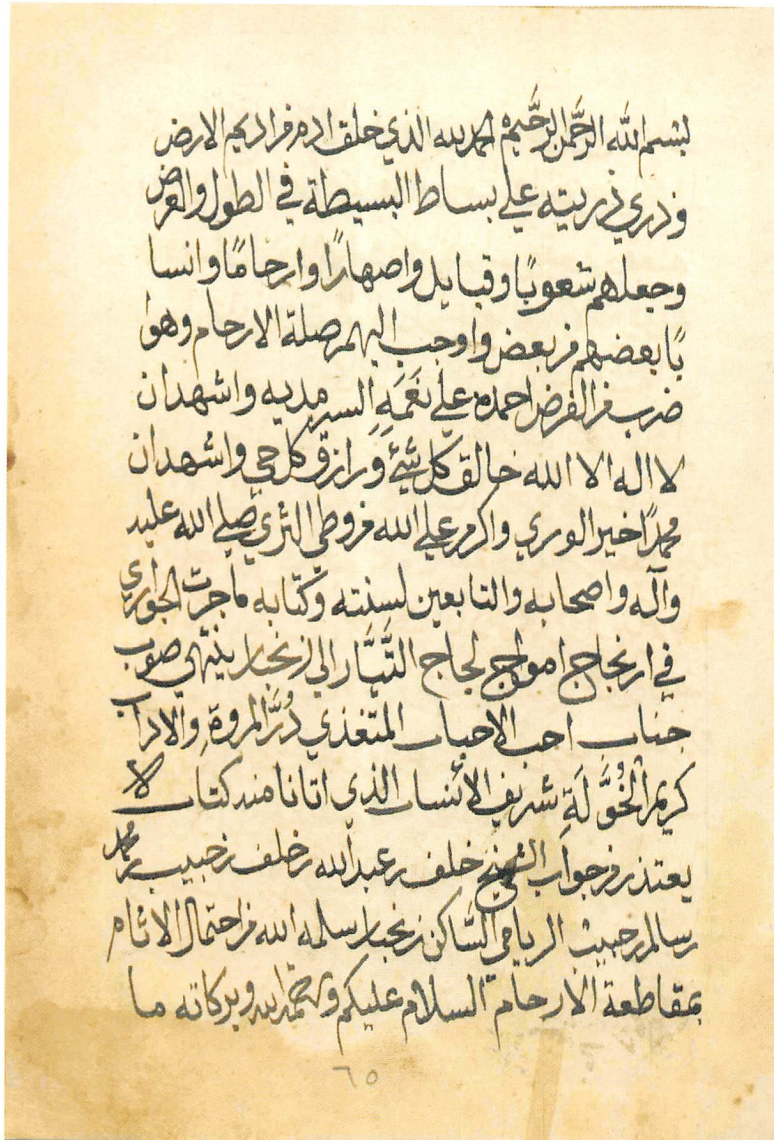 بسم الله الرحمن الرحيم الحمد لله الذي خلق ادم من اديم الارض
وذري ذريته علي بساط البسيطة في الطول والعرض
وجعلهم شعوبًا وقبايل واصهارًا وارحامًا وانسا
بًا بعضهم من بعض واوجب اليهم صلة الارحام وهوا
ضرب من الفرض احمده علي نعمه السرمديه واشهد ان
لا اله الا الله خالق كل شيئ ورازق كل حي واشهد ان
محمدًا خير الوري واكرم علي الله من وطي الثري صلي الله عليه
وآله واصحابه والتابعين لسنته وكتابه ما جرت الجواري
في ارتجاج امواج لجاج التَّيَّار الي زنجبار ينتهي صوب
جناب احب الاحباب المتغذي دُرَّ المروة والاداب
كريم الخُوَّلَةِ شريف الأنساب الذي اتانا منه كتاب لا
يعتذر من جواب الشيخ خلف بن عبدالله بن خلف بن حبيب بن محمد
بن سالم بن حبيب الريامي السَّاكن زنجبار سلمه الله من احتمال الاثام
بمقاطعة الارحام السلام عليكم ورحمة الله وبركاته ما
٦٥